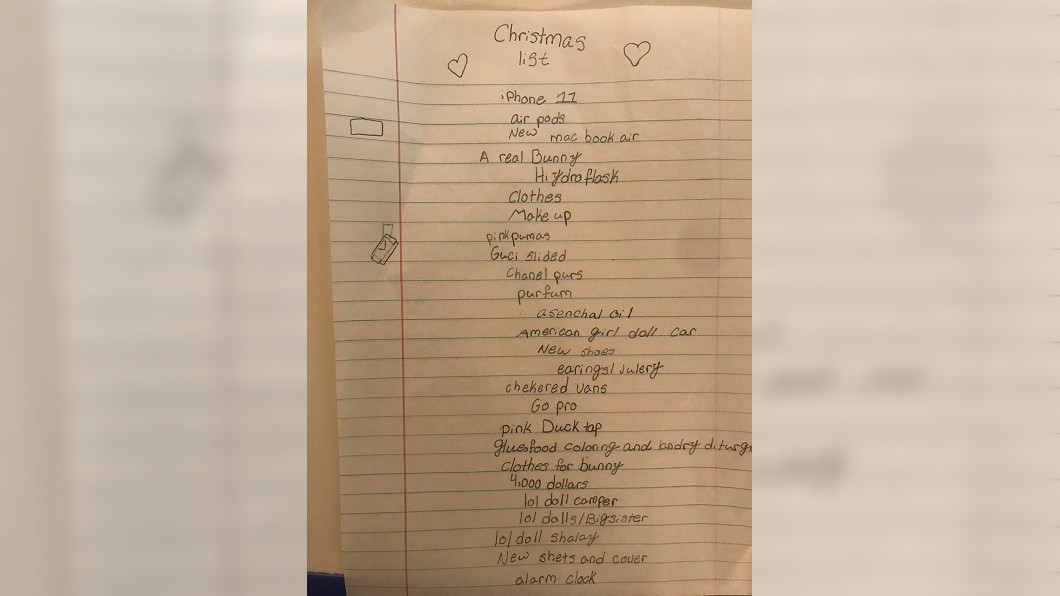 Christmas
list
iPhone 11
air pods
New mac book air
A real Bunny
Hydroflask
Clothes
Make up
pink pumas
Guci slided
Chanel purs
purfum
asenchal oil
American girl doll car
New shoes
earings/julery
chekered vans
Go pro
pink Duck tap
glue food coloring and landry diturge
clothes for bunny
4,000 dollars
lol doll camper
lol dolls/Bigsister
lol doll shalay
New shets and cover
alarm clock